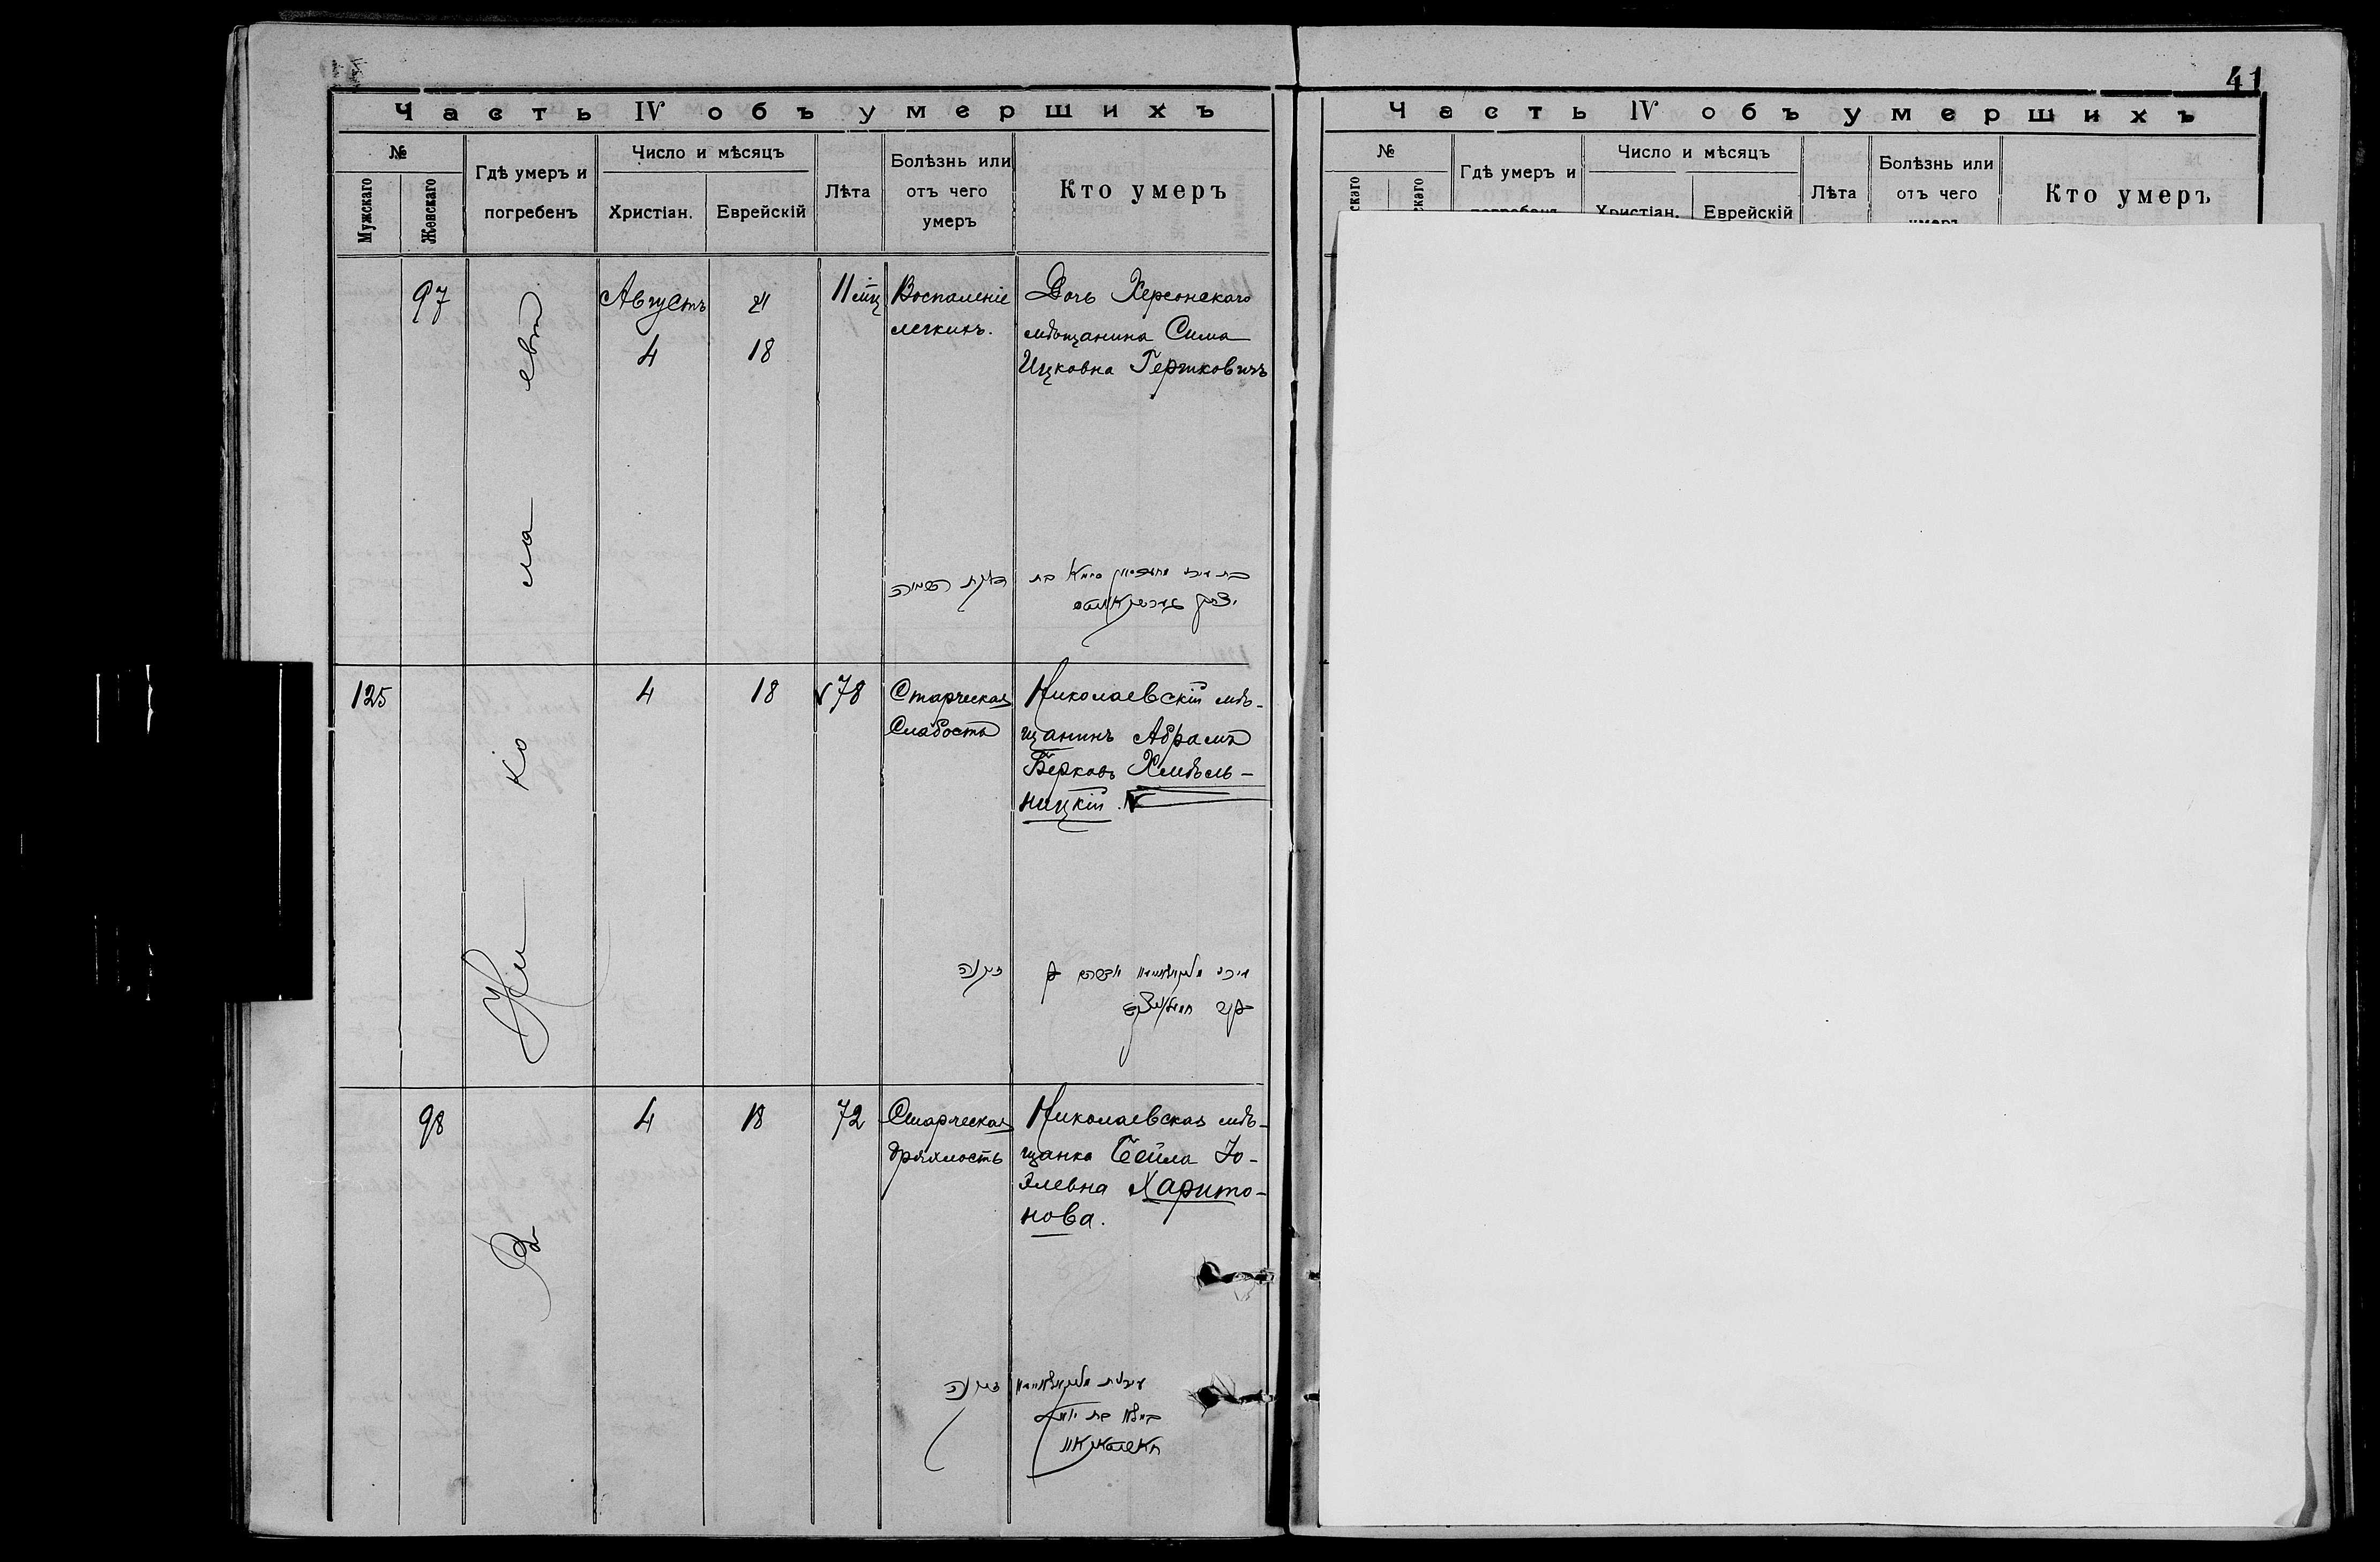 41
Часть IV объ умершихъ
№
Мужскаго
Женскаго
Гдѣ умеръ и
погребенъ
Число и мѣсяцъ
Христіан.
Еврейскій
Лѣта
Болѣзнь или
отъ чего
умеръ
Кто умеръ
97
Августъ
4
18
11 мц
Воспаленіе
легкихъ.
Дочь Херсонскаго
мѣщанина Сима
Ицковна Гершковичъ
125
4
18
78
Старческая
Слабость
Николаевскій мѣ-
щанинъ Абрамъ
Берковъ Хмѣль-
ницкій.
זקנה
98
4
18
72
Старческая
дряхлость
Николаевская мѣ-
щанка Бейла Іо-
элевна Харито-
нова.
זקנה
Въ
Ни
ко
ла
евѣ
Часть IV объ умершихъ
№
скаго
скаго
Гдѣ умеръ и
погребенъ
Число и мѣсяцъ
Христіан.
Еврейскій
Лѣта
Болѣзнь или
отъ чего
умеръ
Кто умеръ